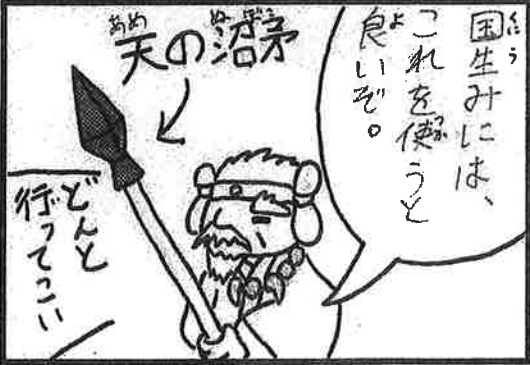 国生みには、
これを使うと
良いぞ。
天の沼矛
どんと
行ってこい